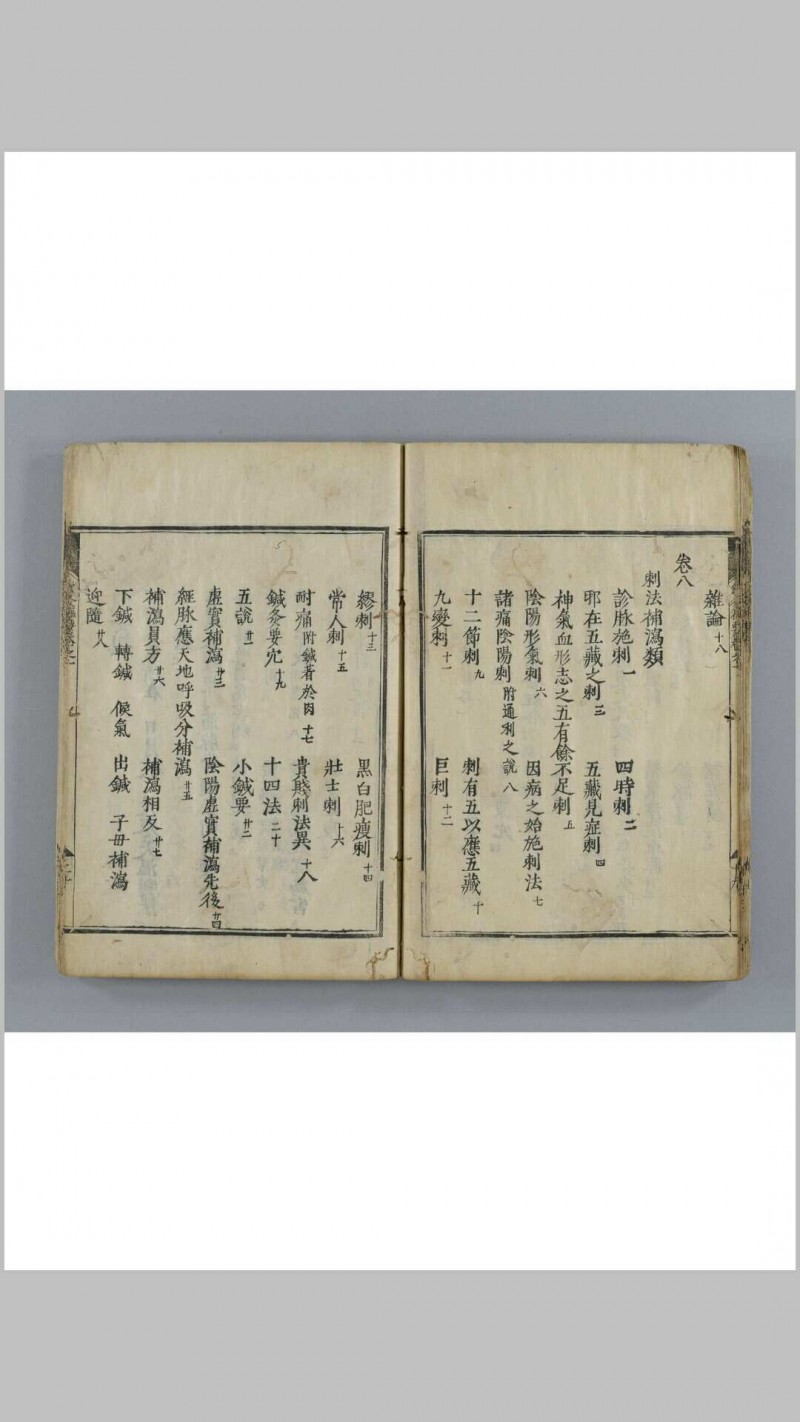 雜論十八
卷八
刺法補瀉類
診脉施刺一 四時刺二
邪在五藏之刺三 五藏見症刺四
神氣血形志之五有餘不足刺五
陰陽形氣刺六 因病之始施刺法七
諸痛陰陽刺附通刺之說八
十二節刺九 刺有五以應五藏十
九變刺十一 巨刺十二
繆刺十三 黑白肥瘦刺十四
常人刺十五 壯士刺十六
耐痛附鍼著於肉十七 貴賤刺法異十八
鍼灸要穴十九 十四法二十
五說廿一 小鍼要廿二
虛實補瀉廿三 陰陽虛實補瀉先後廿四
經脉應天地呼吸分補瀉廿五
補瀉員方廿六 補瀉相反廿七
下鍼 轉鍼 候氣 出鍼 子母補瀉
迎隨廿八